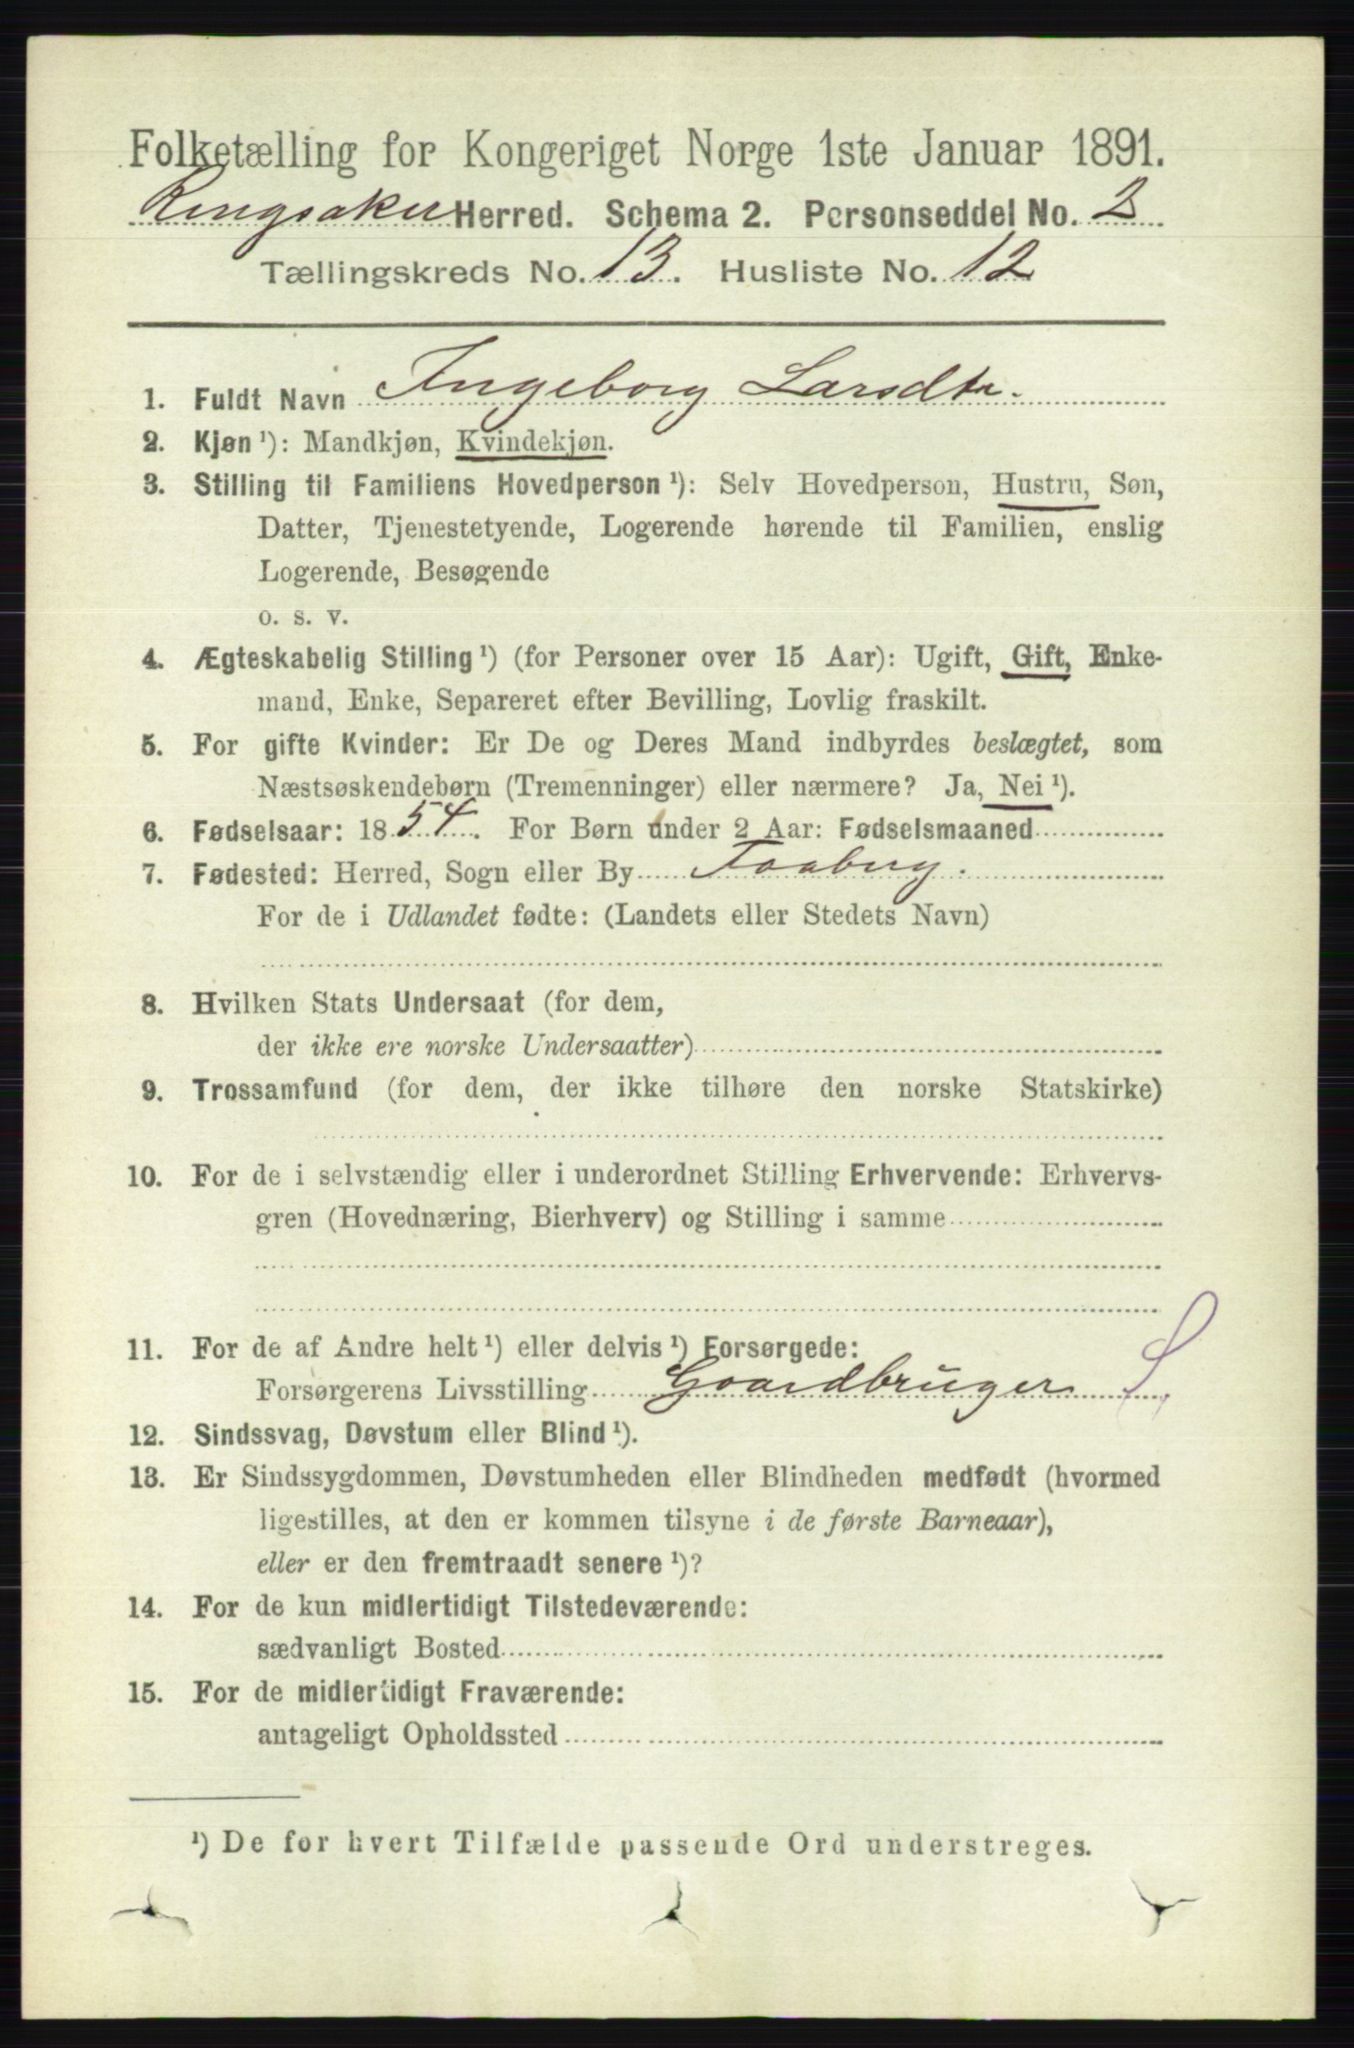 Folketælling for Kongeriget Norge 1ste Januar 1891.
Ringsaker Herred. Schema 2. Personseddel No. 2
Tællingskreds No. 13. Husliste No. 12
1. Fuldt Navn Ingeborg Larsdtr.
2. Kjøn ¹): Mandkjøn, Kvindekjøn.
3. Stilling til Familiens Hovedperson ¹): Selv Hovedperson, Hustru, Søn,
Datter, Tjenestetyende, Logerende hørende til Familien, enslig
Logerende, Besøgende
o. s. v.
4. Ægteskabelig Stilling ¹) (for Personer over 15 Aar): Ugift, Gift, Enke-
mand, Enke, Separeret efter Bevilling, Lovlig fraskilt.
5. For gifte Kvinder: Er De og Deres Mand indbyrdes beslægtet, som
Næstsøskendebørn (Tremenninger) eller nærmere? Ja, Nei ¹).
6. Fødselsaar: 1854. For Børn under 2 Aar: Fødselsmaaned
7. Fødested: Herred, Sogn eller By Faaberg.
For de i Udlandet fødte: (Landets eller Stedets Navn)
8. Hvilken Stats Undersaat (for dem,
der ikke ere norske Undersaatter)
9. Trossamfund (for dem, der ikke tilhøre den norske Statskirke)
10. For de i selvstændig eller i underordnet Stilling Erhvervende: Erhvervs-
gren (Hovednæring, Bierhverv) og Stilling i samme
11. For de af Andre helt ¹) eller delvis ¹) Forsørgede:
Forsørgerens Livsstilling Gaardbruger S.
12. Sindssvag, Døvstum eller Blind ¹).
13. Er Sindssygdommen, Døvstumheden eller Blindheden medfødt (hvormed
ligestilles, at den er kommen tilsyne i de første Barneaar),
eller er den fremtraadt senere ¹)?
14. For de kun midlertidigt Tilstedeværende:
sædvanligt Bosted
15. For de midlertidigt Fraværende:
antageligt Opholdssted
¹) De for hvert Tilfælde passende Ord understreges.